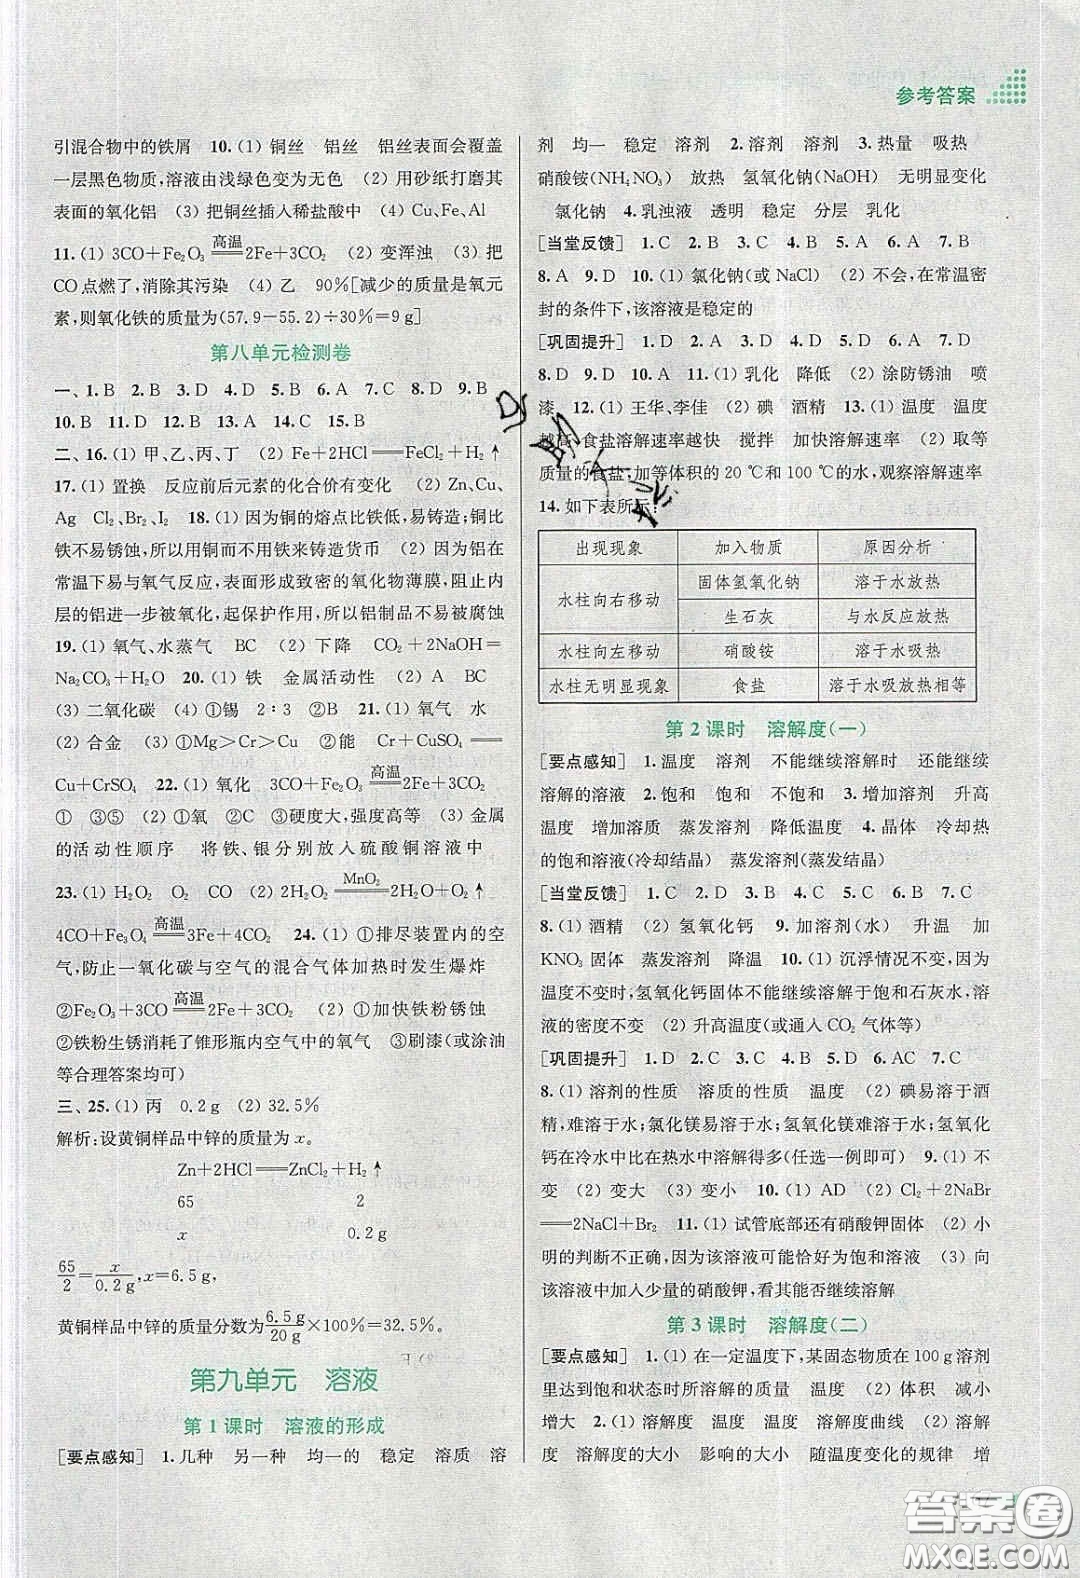 参考答案
引混合物中的铁屑 10.(1) 铜丝 铝丝 铝丝表面会覆盖
一层黑色物质,溶液由浅绿色变为无色 (2) 用砂纸打磨其
表面的氧化铝 (3) 把铜丝插入稀盐酸中 (4) Cu、Fe、Al
11.(1) 3CO+Fe₂O₃ =高温= 2Fe+3CO₂ (2) 变浑浊 (3) 把
CO点燃了,消除其污染 (4) 乙 90%[减少的质量是氧元
素,则氧化铁的质量为(57.9-55.2)÷30%=9 g]
第八单元检测卷
一、1.B 2.B 3.D 4.D 5.D 6.A 7.C 8.D 9.B
10.B 11.D 12.B 13.A 14.C 15.B
二、16.(1) 甲、乙、丙、丁 (2) Fe+2HCl══FeCl₂+H₂↑
17.(1) 置换 反应前后元素的化合价有变化 (2) Zn、Cu、
Ag Cl₂、Br₂、I₂ 18.(1) 因为铜的熔点比铁低,易铸造;铜比
铁不易锈蚀,所以用铜而不用铁来铸造货币 (2) 因为铝在
常温下易与氧气反应,表面形成致密的氧化物薄膜,阻止内
层的铝进一步被氧化,起保护作用,所以铝制品不易被腐蚀
19.(1) 氧气、水蒸气 BC (2) 下降 CO₂+2NaOH══
Na₂CO₃+H₂O 20.(1) 铁 金属活动性 (2) A BC
(3) 二氧化碳 (4) ①锡 2∶3 ②B 21.(1) 氧气 水
(2) 合金 (3) ①Mg>Cr>Cu ②能 Cr+CuSO₄══
Cu+CrSO₄ 22.(1) 氧化 3CO+Fe₂O₃ =高温= 2Fe+3CO₂
① ③⑤ (2) ①氧 ②C ③硬度大,强度高等 (3) 金属
的活动性顺序 将铁、银分别放入硫酸铜溶液中
23.(1) H₂O₂ O₂ CO (2) 2H₂O₂ =MnO₂= 2H₂O+O₂↑
4CO+Fe₃O₄ =高温= 3Fe+4CO₂ 24.(1) ①排尽装置内的空
气,防止一氧化碳与空气的混合气体加热时发生爆炸
②Fe₂O₃+3CO =高温= 2Fe+3CO₂ (2) ①加快铁粉锈蚀
②铁粉生锈消耗了锥形瓶内空气中的氧气 ③刷漆(或涂油
等合理答案均可)
三、25.(1) 丙 0.2 g (2) 32.5%
解析:设黄铜样品中锌的质量为x。
Zn+2HCl══ZnCl₂+H₂↑
65 2
x 0.2 g
65/2=x/0.2 g,x=6.5 g,
黄铜样品中锌的质量分数为6.5 g/20 g×100%=32.5%。
第九单元 溶液
第1课时 溶液的形成
[要点感知] 1.几种 另一种 均一的 稳定 溶质 溶
剂 均一 稳定 溶剂 2.溶剂 溶剂 溶剂 3.热量 吸热
硝酸铵(NH₄NO₃) 放热 氢氧化钠(NaOH) 无明显变化
氯化钠 4.乳浊液 透明 稳定 分层 乳化
[当堂反馈] 1.C 2.B 3.C 4.B 5.A 6.A 7.B
8.A 9.D 10.(1) 氯化钠(或NaCl) (2) 不会,在常温密
封的条件下,该溶液是稳定的
[巩固提升] 1.D 2.A 3.D 4.D 5.D 6.B 7.D
8.D 9.D 10.A 11.(1) 乳化 降低 (2) 涂防锈油 喷
漆 12.(1) 王华、李佳 (2) 碘 酒精 13.(1) 温度 温度
越高,食盐溶解速率越快 搅拌 加快溶解速率 (2) 取等
质量的食盐,加等体积的20 ℃和100 ℃的水,观察溶解速率
14.如下表所示:
出现现象 加入物质 原因分析
水柱向右移动 固体氢氧化钠 溶于水放热
生石灰 与水反应放热
水柱向左移动 硝酸铵 溶于水吸热
水柱无明显现象 食盐 溶于水吸放热相等
第2课时 溶解度(一)
[要点感知] 1.温度 溶剂 不能继续溶解时 还能继续
溶解的溶液 2.饱和 饱和 不饱和 3.增加溶剂 升高
温度 增加溶质 蒸发溶剂 降低温度 4.晶体 冷却热
的饱和溶液(冷却结晶) 蒸发溶剂(蒸发结晶)
[当堂反馈] 1.C 2.D 3.B 4.C 5.C 6.B 7.C
8.(1) 酒精 (2) 氢氧化钙 9.加溶剂(水) 升温 加
KNO₃固体 蒸发溶剂 降温 10.(1) 沉浮情况不变,因为
温度不变时,氢氧化钙固体不能继续溶解于饱和石灰水,溶
液的密度不变 (2) 升高温度(或通入CO₂气体等)
[巩固提升] 1.D 2.C 3.C 4.B 5.D 6.AC 7.C
8.(1) 溶剂的性质 溶质的性质 温度 (2) 碘易溶于酒
精,难溶于水;氯化镁易溶于水;氢氧化镁难溶于水;氢氧化
钙在冷水中比在热水中溶解得多(任选一例即可) 9.(1) 不
变 (2) 变大 (3) 变小 10.(1) AD (2) Cl₂+2NaBr
══2NaCl+Br₂ 11.(1) 试管底部还有硝酸钾固体 (2) 小
明的判断不正确,因为该溶液可能恰好为饱和溶液 (3) 向
该溶液中加入少量的硝酸钾,看其能否继续溶解
第3课时 溶解度(二)
[要点感知] 1.(1) 在一定温度下,某固态物质在100 g溶剂
里达到饱和状态时所溶解的质量 温度 (2) 体积 减小
增大 2.(1) 溶解度 温度 溶解度曲线 (2) 溶解
度 溶解度的大小 影响的大小 随温度变化的规律 增
答案圈
MXQE.COM